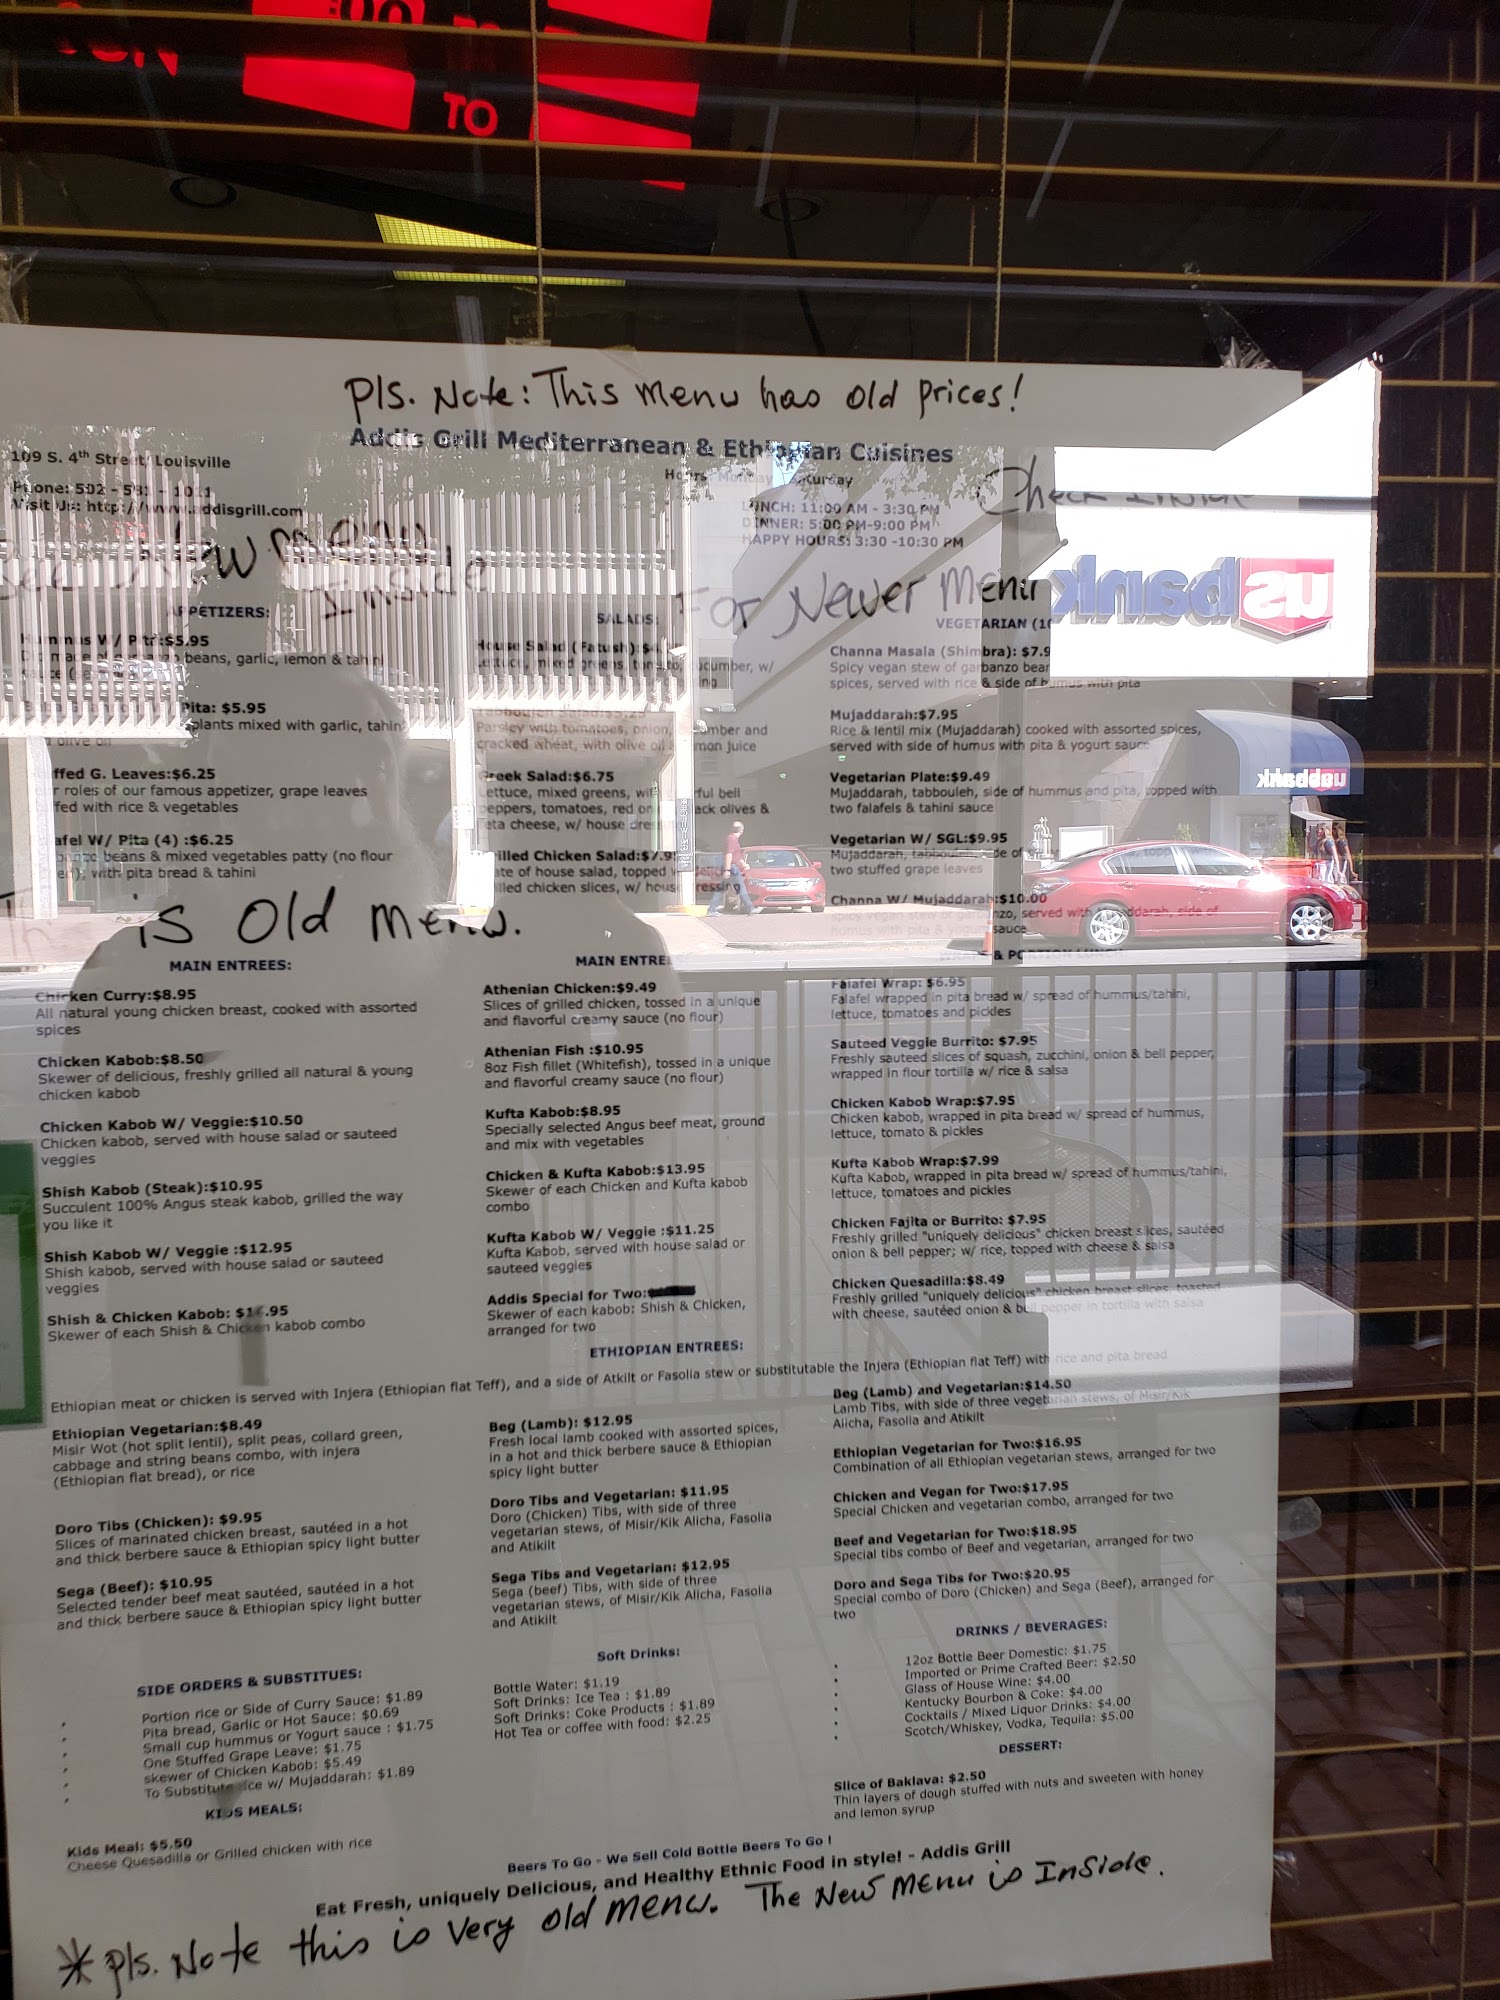 TO
Pls. Note: This menu has old prices!
Addis Grill Mediterranean & Ethiopian Cuisines
109 S. 4th Street, Louisville
Phone: 502 - 581 - 1011
Visit Us: http://www.addisgrill.com
LUNCH: 11:00 AM - 3:30 PM
DINNER: 5:00 PM-9:00 PM
HAPPY HOURS: 3:30 -10:30 PM
Check Inside
For Newer Menu
See New menu
Inside
us bank
usbank
APPETIZERS:
Hummus W/ Pita:$5.95
beans, garlic, lemon & tahini
Pita: $5.95
plants mixed with garlic, tahini
olive oil
ffed G. Leaves:$6.25
r roles of our famous appetizer, grape leaves
fed with rice & vegetables
afel W/ Pita (4) :$6.25
beans & mixed vegetables patty (no flour
with pita bread & tahini
This is Old menu.
SALADS:
House Salad (Fatush):$
Lettuce, mixed greens, tomato, cucumber, w/
Parsley with tomatoes, onion,
cracked wheat, with olive oil
Greek Salad:$6.75
Lettuce, mixed greens, with
peppers, tomatoes, red on ack olives &
feta cheese, w/ house dressing
Grilled Chicken Salad:$7.9
ate of house salad, topped w
illed chicken slices, w/ house dressing
VEGETARIAN
Channa Masala (Shimbra): $7.9
Spicy vegan stew of garbanzo bean
spices, served with rice & side of humus with pita
Mujaddarah:$7.95
Rice & lentil mix (Mujaddarah) cooked with assorted spices,
served with side of humus with pita & yogurt sauce
Vegetarian Plate:$9.49
Mujaddarah, tabbouleh, side of hummus and pita, topped with
two falafels & tahini sauce
Vegetarian W/ SGL:$9.95
Mujaddarah, tabbouleh, side of
two stuffed grape leaves
Channa W/ Mujaddarah:$10.00
spicy vegan stew of garbanzo, served with Mujaddarah, side of
humus with pita & yogurt sauce
MAIN ENTREES:
Chicken Curry:$8.95
All natural young chicken breast, cooked with assorted
spices
Chicken Kabob:$8.50
Skewer of delicious, freshly grilled all natural & young
chicken kabob
Chicken Kabob W/ Veggie:$10.50
Chicken kabob, served with house salad or sauteed
veggies
Shish Kabob (Steak):$10.95
Succulent 100% Angus steak kabob, grilled the way
you like it
Shish Kabob W/ Veggie :$12.95
Shish kabob, served with house salad or sauteed
veggies
Shish & Chicken Kabob:
Skewer of each Shish & Chicken kabob combo
MAIN ENTREES
Athenian Chicken:$9.49
Slices of grilled chicken, tossed in a unique
and flavorful creamy sauce (no flour)
Athenian Fish :$10.95
8oz Fish fillet (Whitefish), tossed in a unique
and flavorful creamy sauce (no flour)
Kufta Kabob:$8.95
Specially selected Angus beef meat, ground
and mix with vegetables
Chicken & Kufta Kabob:$13.95
Skewer of each Chicken and Kufta kabob
combo
Kufta Kabob W/ Veggie :$11.25
Kufta Kabob, served with house salad or
sauteed veggies
Addis Special for Two:
Skewer of each kabob: Shish & Chicken,
arranged for two
& PORTION LUNCH:
Falafel Wrap: $6.95
Falafel wrapped in pita bread w/ spread of hummus/tahini,
lettuce, tomatoes and pickles
Sauteed Veggie Burrito: $7.95
Freshly sauteed slices of squash, zucchini, onion & bell pepper,
wrapped in flour tortilla w/ rice & salsa
Chicken Kabob Wrap:$7.95
Chicken kabob, wrapped in pita bread w/ spread of hummus,
lettuce, tomato & pickles
Kufta Kabob Wrap:$7.99
Kufta Kabob, wrapped in pita bread w/ spread of hummus/tahini,
lettuce, tomatoes and pickles
Chicken Fajita or Burrito: $7.95
Freshly grilled "uniquely delicious" chicken breast slices, sautéed
onion & bell pepper; w/ rice, topped with cheese & salsa
Chicken Quesadilla:$8.49
Freshly grilled "uniquely delicious" chicken breast slices, toasted
with cheese, sautéed onion & bell pepper in tortilla with salsa
ETHIOPIAN ENTREES:
Ethiopian meat or chicken is served with Injera (Ethiopian flat Teff), and a side of Atkilt or Fasolia stew or substitutable the Injera (Ethiopian flat Teff) with rice and pita bread
Ethiopian Vegetarian:$8.49
Misir Wot (hot split lentil), split peas, collard green,
cabbage and string beans combo, with injera
(Ethiopian flat bread), or rice
Doro Tibs (Chicken): $9.95
Slices of marinated chicken breast, sautéed in a hot
and thick berbere sauce & Ethiopian spicy light butter
Sega (Beef): $10.95
Selected tender beef meat sautéed, sautéed in a hot
and thick berbere sauce & Ethiopian spicy light butter
Beg (Lamb): $12.95
Fresh local lamb cooked with assorted spices,
in a hot and thick berbere sauce & Ethiopian
spicy light butter
Doro Tibs and Vegetarian: $11.95
Doro (Chicken) Tibs, with side of three
vegetarian stews, of Misir/Kik Alicha, Fasolia
and Atikilt
Sega Tibs and Vegetarian: $12.95
Sega (beef) Tibs, with side of three
vegetarian stews, of Misir/Kik Alicha, Fasolia
and Atikilt
Beg (Lamb) and Vegetarian:$14.50
Lamb Tibs, with side of three vegetarian stews, of Misir/Kik
Alicha, Fasolia and Atikilt
Ethiopian Vegetarian for Two:$16.95
Combination of all Ethiopian vegetarian stews, arranged for two
Chicken and Vegan for Two:$17.95
Special Chicken and vegetarian combo, arranged for two
Beef and Vegetarian for Two:$18.95
Special tibs combo of Beef and vegetarian, arranged for two
Doro and Sega Tibs for Two:$20.95
Special combo of Doro (Chicken) and Sega (Beef), arranged for
two
SIDE ORDERS & SUBSTITUES:
Portion rice or Side of Curry Sauce: $1.89
Pita bread, Garlic or Hot Sauce: $0.69
Small cup hummus or Yogurt sauce : $1.75
One Stuffed Grape Leave: $1.75
skewer of Chicken Kabob: $5.49
To Substitute rice w/ Mujaddarah: $1.89
KIDS MEALS:
Kids Meal: $5.50
Cheese Quesadilla or Grilled chicken with rice
Soft Drinks:
Bottle Water: $1.19
Soft Drinks: Ice Tea : $1.89
Soft Drinks: Coke Products : $1.89
Hot Tea or coffee with food: $2.25
DRINKS / BEVERAGES:
12oz Bottle Beer Domestic: $1.75
Imported or Prime Crafted Beer: $2.50
Glass of House Wine: $4.00
Kentucky Bourbon & Coke: $4.00
Cocktails / Mixed Liquor Drinks: $4.00
Scotch/Whiskey, Vodka, Tequila: $5.00
DESSERT:
Slice of Baklava: $2.50
Thin layers of dough stuffed with nuts and sweeten with honey
and lemon syrup
Beers To Go - We Sell Cold Bottle Beers To Go !
Eat Fresh, uniquely Delicious, and Healthy Ethnic Food in style! - Addis Grill
* Pls. Note this is very old menu. The New menu is Inside.